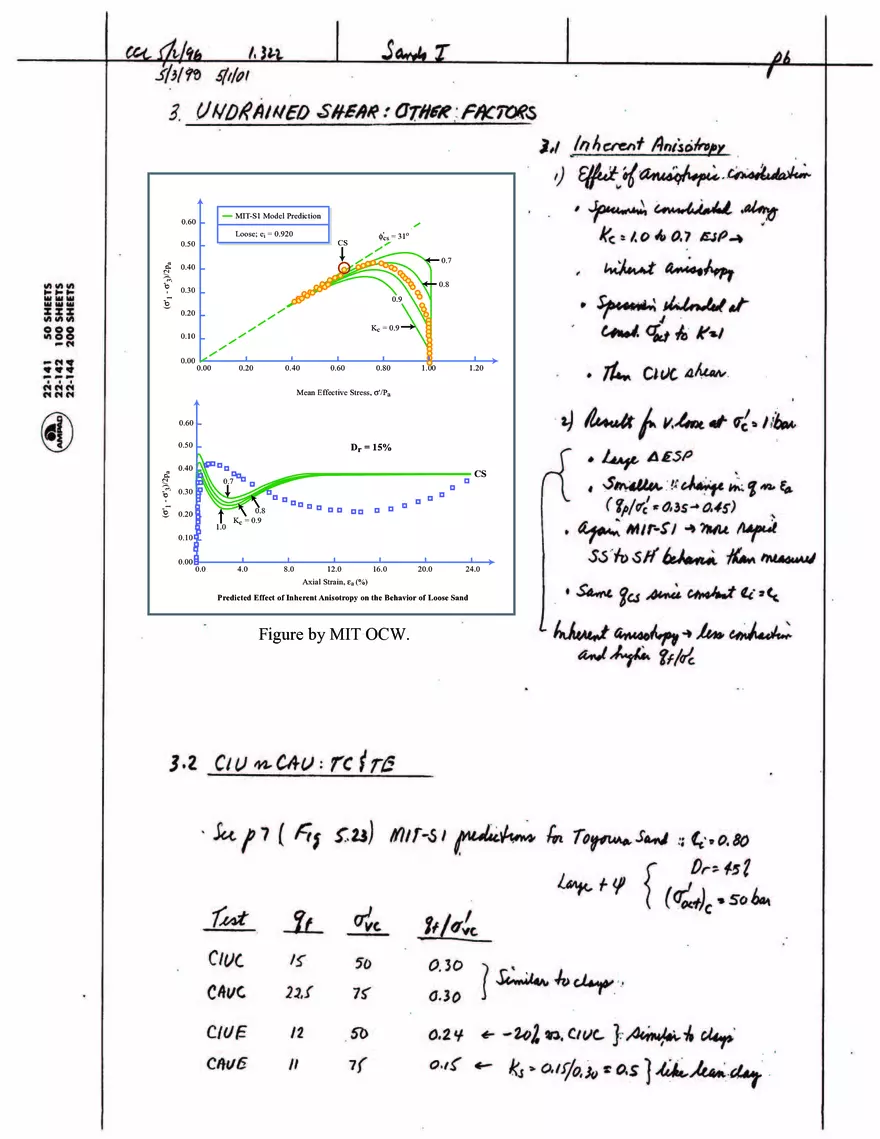 CCL 5/2/96 1.322 Sands I p6
5/3/99 5/1/01
3. UNDRAINED SHEAR: OTHER FACTORS
22-141 50 SHEETS
22-142 100 SHEETS
22-144 200 SHEETS
AMPAD
MIT-S1 Model Prediction
Loose; ei = 0.920
CS
ϕ'cs = 31°
0.7
0.8
0.9
Kc = 0.9
(σ'1 - σ'3)/2pa
0.60
0.50
0.40
0.30
0.20
0.10
0.00
0.00 0.20 0.40 0.60 0.80 1.00 1.20
Mean Effective Stress, σ'/Pa
(σ'1 - σ'3)/2pa
0.60
0.50
0.40
0.30
0.20
0.10
0.00
Dr = 15%
CS
0.7
0.8
Kc = 0.9
1.0
0.0 4.0 8.0 12.0 16.0 20.0 24.0
Axial Strain, εa (%)
Predicted Effect of Inherent Anisotropy on the Behavior of Loose Sand
Figure by MIT OCW.
3.1 Inherent Anisotropy
1) Effect of anisotropic consolidation
• Specimen consolidated along
Kc = 1.0 to 0.7 ESP →
inherent anisotropy
• Specimen unloaded at
const. σ'oct to K=1
• Then CIUC shear
2) Results for v. loose at σ'c = 1 bar
• Large Δ ESP
• Smaller change in q vs εa
(qp/σ'c = 0.35→0.45)
• Again MIT-S1 → more rapid
SS to SH behavior than measured
• Same qcs since constant ei = ec
Inherent anisotropy → less contraction
and higher qf/σ'c
3.2 CIU vs CAU: TC & TE
• See p7 (Fig 5.23) MIT-S1 predictions for Toyoura Sand :: ei = 0.80
Dr = 45%
Large + ψ { (σ'oct)c = 50 bar
Test qf σ'vc qf/σ'vc
CIUC 15 50 0.30
CAUC 22.5 75 0.30 } Similar to clays
CIUE 12 50 0.24 ← -20% vs. CIUC } similar to clays
CAUE 11 75 0.15 ← Ks = 0.15/0.30 = 0.5 } like lean clay